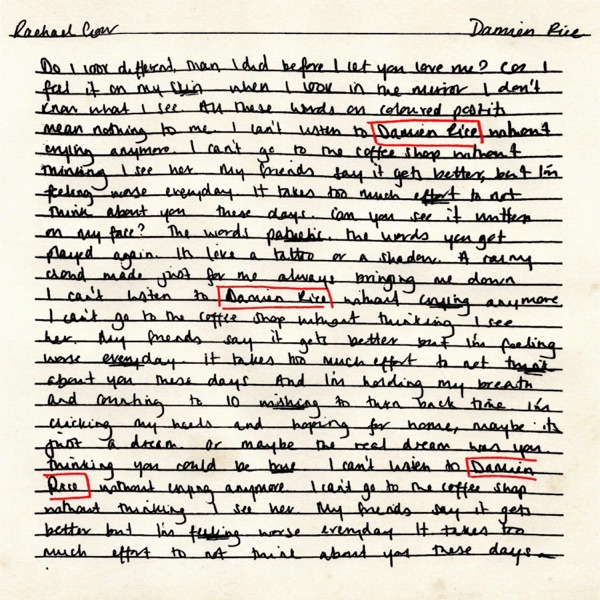 Rachael Crow Damien Rice
Do I look different, than I did before I let you love me? Cos I
feel it on my skin when I look in the mirror I don't
know what I see. All these words on coloured postit
mean nothing to me. I can't listen to Damien Rice without
crying anymore. I can't go to the coffee shop without
thinking I see her. My friends say it gets better, but I'm
feeling worse everyday. It takes too much effort to not
think about you these days. Can you see it written
on my face? The words pathetic. The words you get
played again. Its like a tattoo or a shadow. A rainy
cloud made just for me always bringing me down
I can't listen to Damien Rice without crying anymore
I can't go to the coffee shop without thinking I see
her. My friends say it gets better but I'm feeling
worse everyday. It takes too much effort to not think
about you these days. And I'm holding my breath
and counting to 10 wishing to turn back time. I'm
clicking my heels and hoping for home, maybe its
just a dream or maybe the real dream was you.
thinking you could be I can't listen to Damien
Rice without crying anymore. I can't go to the coffee shop
without thinking I see her. My friends say it gets
better but I'm feeling worse everyday It takes too
much effort to not think about you these days